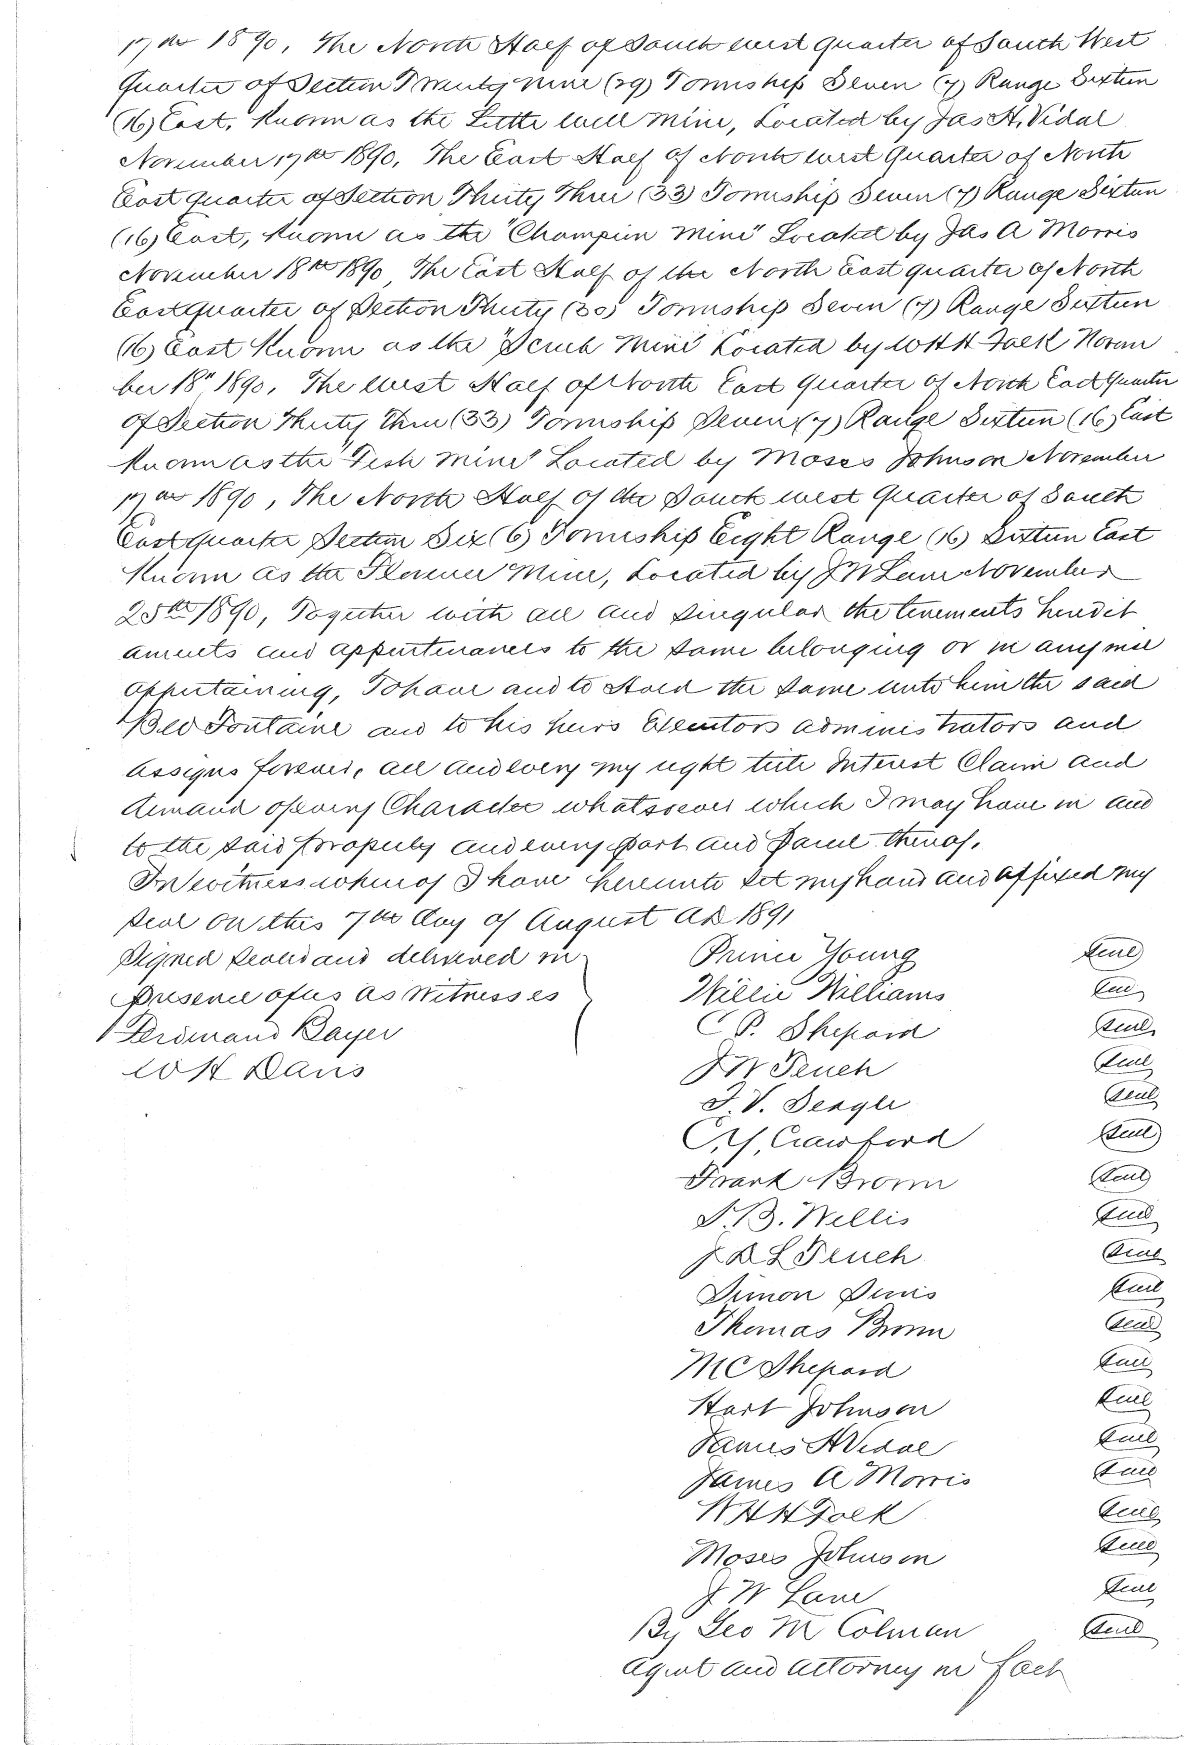 17th 1890, The North Half of South west quarter of South West
quarter of Section Twenty nine (29) Township Seven (7) Range Sixteen
(16) East, Known as the Little will mine, Located by Jas H. Vidal
November 17th 1890, The East Half of North west quarter of North
East quarter of Section Thirty Three (33) Township Seven (7) Range Sixteen
(16) East, Known as the "Champion Mine" Located by Jas A Morris
November 18th 1890, The East Half of the North East quarter of North
East quarter of Section Thirty (30) Township Seven (7) Range Sixteen
(16) East Known as the "Scrub Mine" Located by W H H Folk Novem
ber 18" 1890, The West Half of North East quarter of North East Quarter
of Section Thirty three (33) Township Seven (7) Range Sixteen (16) East
Known as the "Fish Mine" Located by Moses Johnson November
17th 1890, The North Half of the South west quarter of South
East quarter Section Six (6) Township Eight Range (16) Sixteen East
Known as the Florence Mine, Located by J W Lane November
25th 1890, Together with all and singular the tenements heredit
aments and appurtenances to the same belonging or in anywise
appertaining, To have and to Hold the same unto him the said
Beo Fontaine and to his heirs Executors administrators and
assigns forever, all and every my right title Interest Claim and
demand of every Character whatsoever which I may have in and
to the said property and every part and parcel thereof.
In witness whereof I have hereunto set my hand and affixed my
seal on this 7th day of August AD 1891
Signed sealed and delivered in
presence of us as Witnesses
Ferdinand Bayer
W H Davis
Prince Young Seal
Willie Williams Seal
C P. Shepard Seal
J W Teuch Seal
J. V. Seagle Seal
C. Y. Crawford Seal
Frank Brown Seal
S. B. Willis Seal
J D L Teuch Seal
Simon Sims Seal
Thomas Brown Seal
M C Shepard Seal
Hart Johnson Seal
James H Vidal Seal
James A Morris Seal
W H H Folk Seal
Moses Johnson Seal
J W Lane Seal
By Geo M Colman Seal
Agent and Attorney in fact